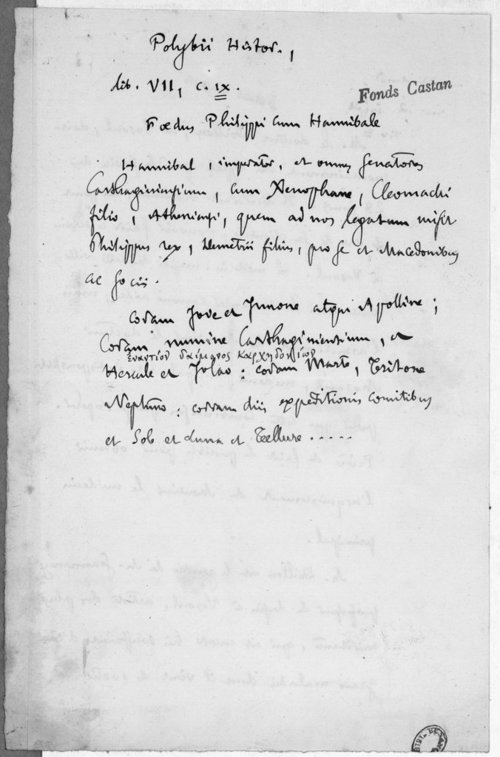 Polybii Histor.,
lib. VII, c. IX.
Fonds Castan
Fœdus Philippi cum Hannibale
Hannibal, imperator, et omnes Senatores
Carthaginiensium, cum Xenophane, Cleomachi
filio, Atheniensi, quem ad nos legatum misit
Philippus rex, Demetrii filius, pro se et Macedonibus
ac sociis.
Coram Jove et Junone atque Apolline;
Coram numine Carthaginiensium, et
ἐναντίον δαίμονος Καρχηδονίων
Hercule et Jolao: coram Marte, Tritone
Neptuno: coram diis expeditionis comitibus
et Sole et Luna et Tellure .....